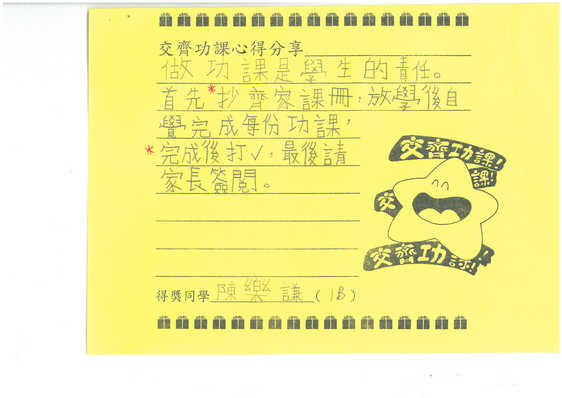 交齊功課心得分享
做功課是學生的責任。
首先*抄齊家課冊，放學後自
覺完成每份功課，
*完成後打✓，最後請
家長簽閱。
交齊功課!
課!
交
交齊功課!
得獎同學 陳樂謙 (1B)